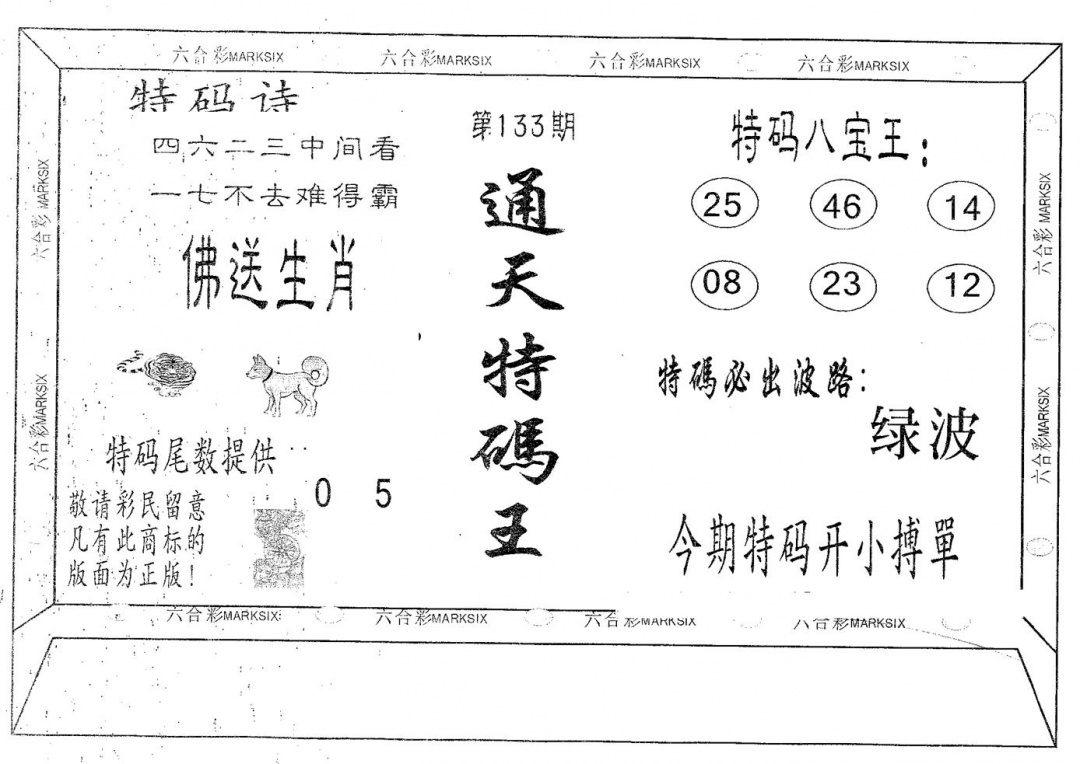 六合彩MARKSIX
六合彩MARKSIX
六合彩MARKSIX
六合彩MARKSIX
特码诗
四六二三中间看
一七不去难得霸
佛送生肖
特码尾数提供
0 5
敬请彩民留意
凡有此商标的
版面为正版!
第133期
通天特碼王
特码八宝王:
25 46 14
08 23 12
特碼必出波路:
绿波
今期特码开小搏單
六合彩MARKSIX
六合彩MARKSIX
六合彩MARKSIX
六合彩MARKSIX
六合彩MARKSIX
六合彩MARKSIX
六合彩MARKSIX
六合彩MARKSIX